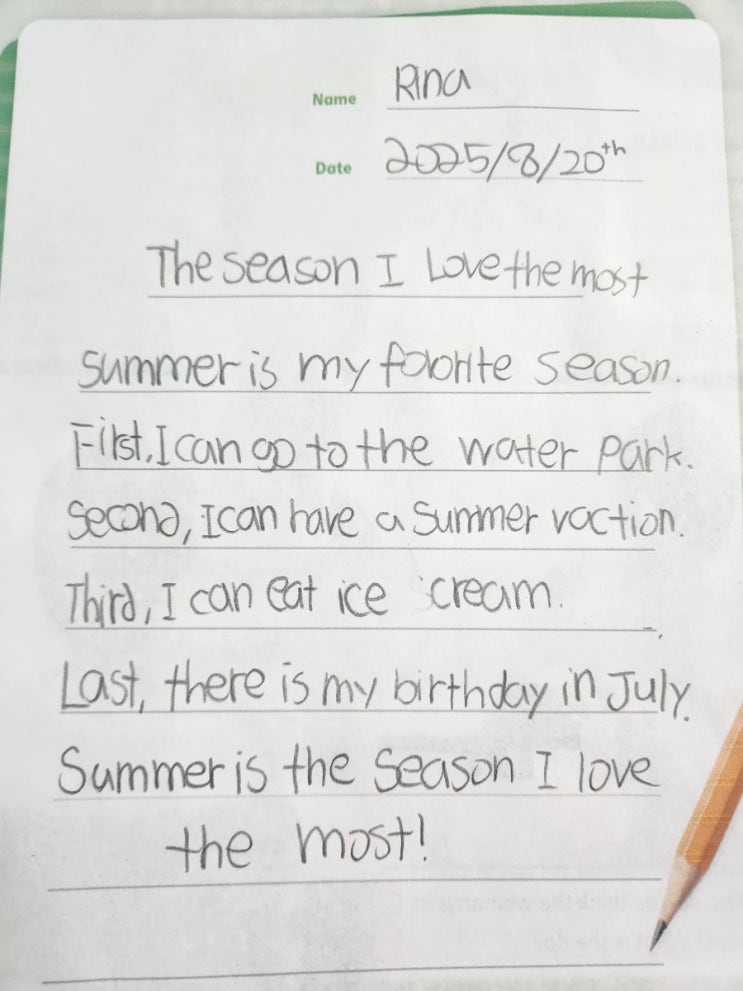 Name Rina
Date 2025/8/20th
The season I Love the most
Summer is my foborite season.
First, I can go to the water park.
Second, I can have a Summer vaction.
Third, I can eat ice cream.
Last, there is my birthday in July.
Summer is the season I love
the most!